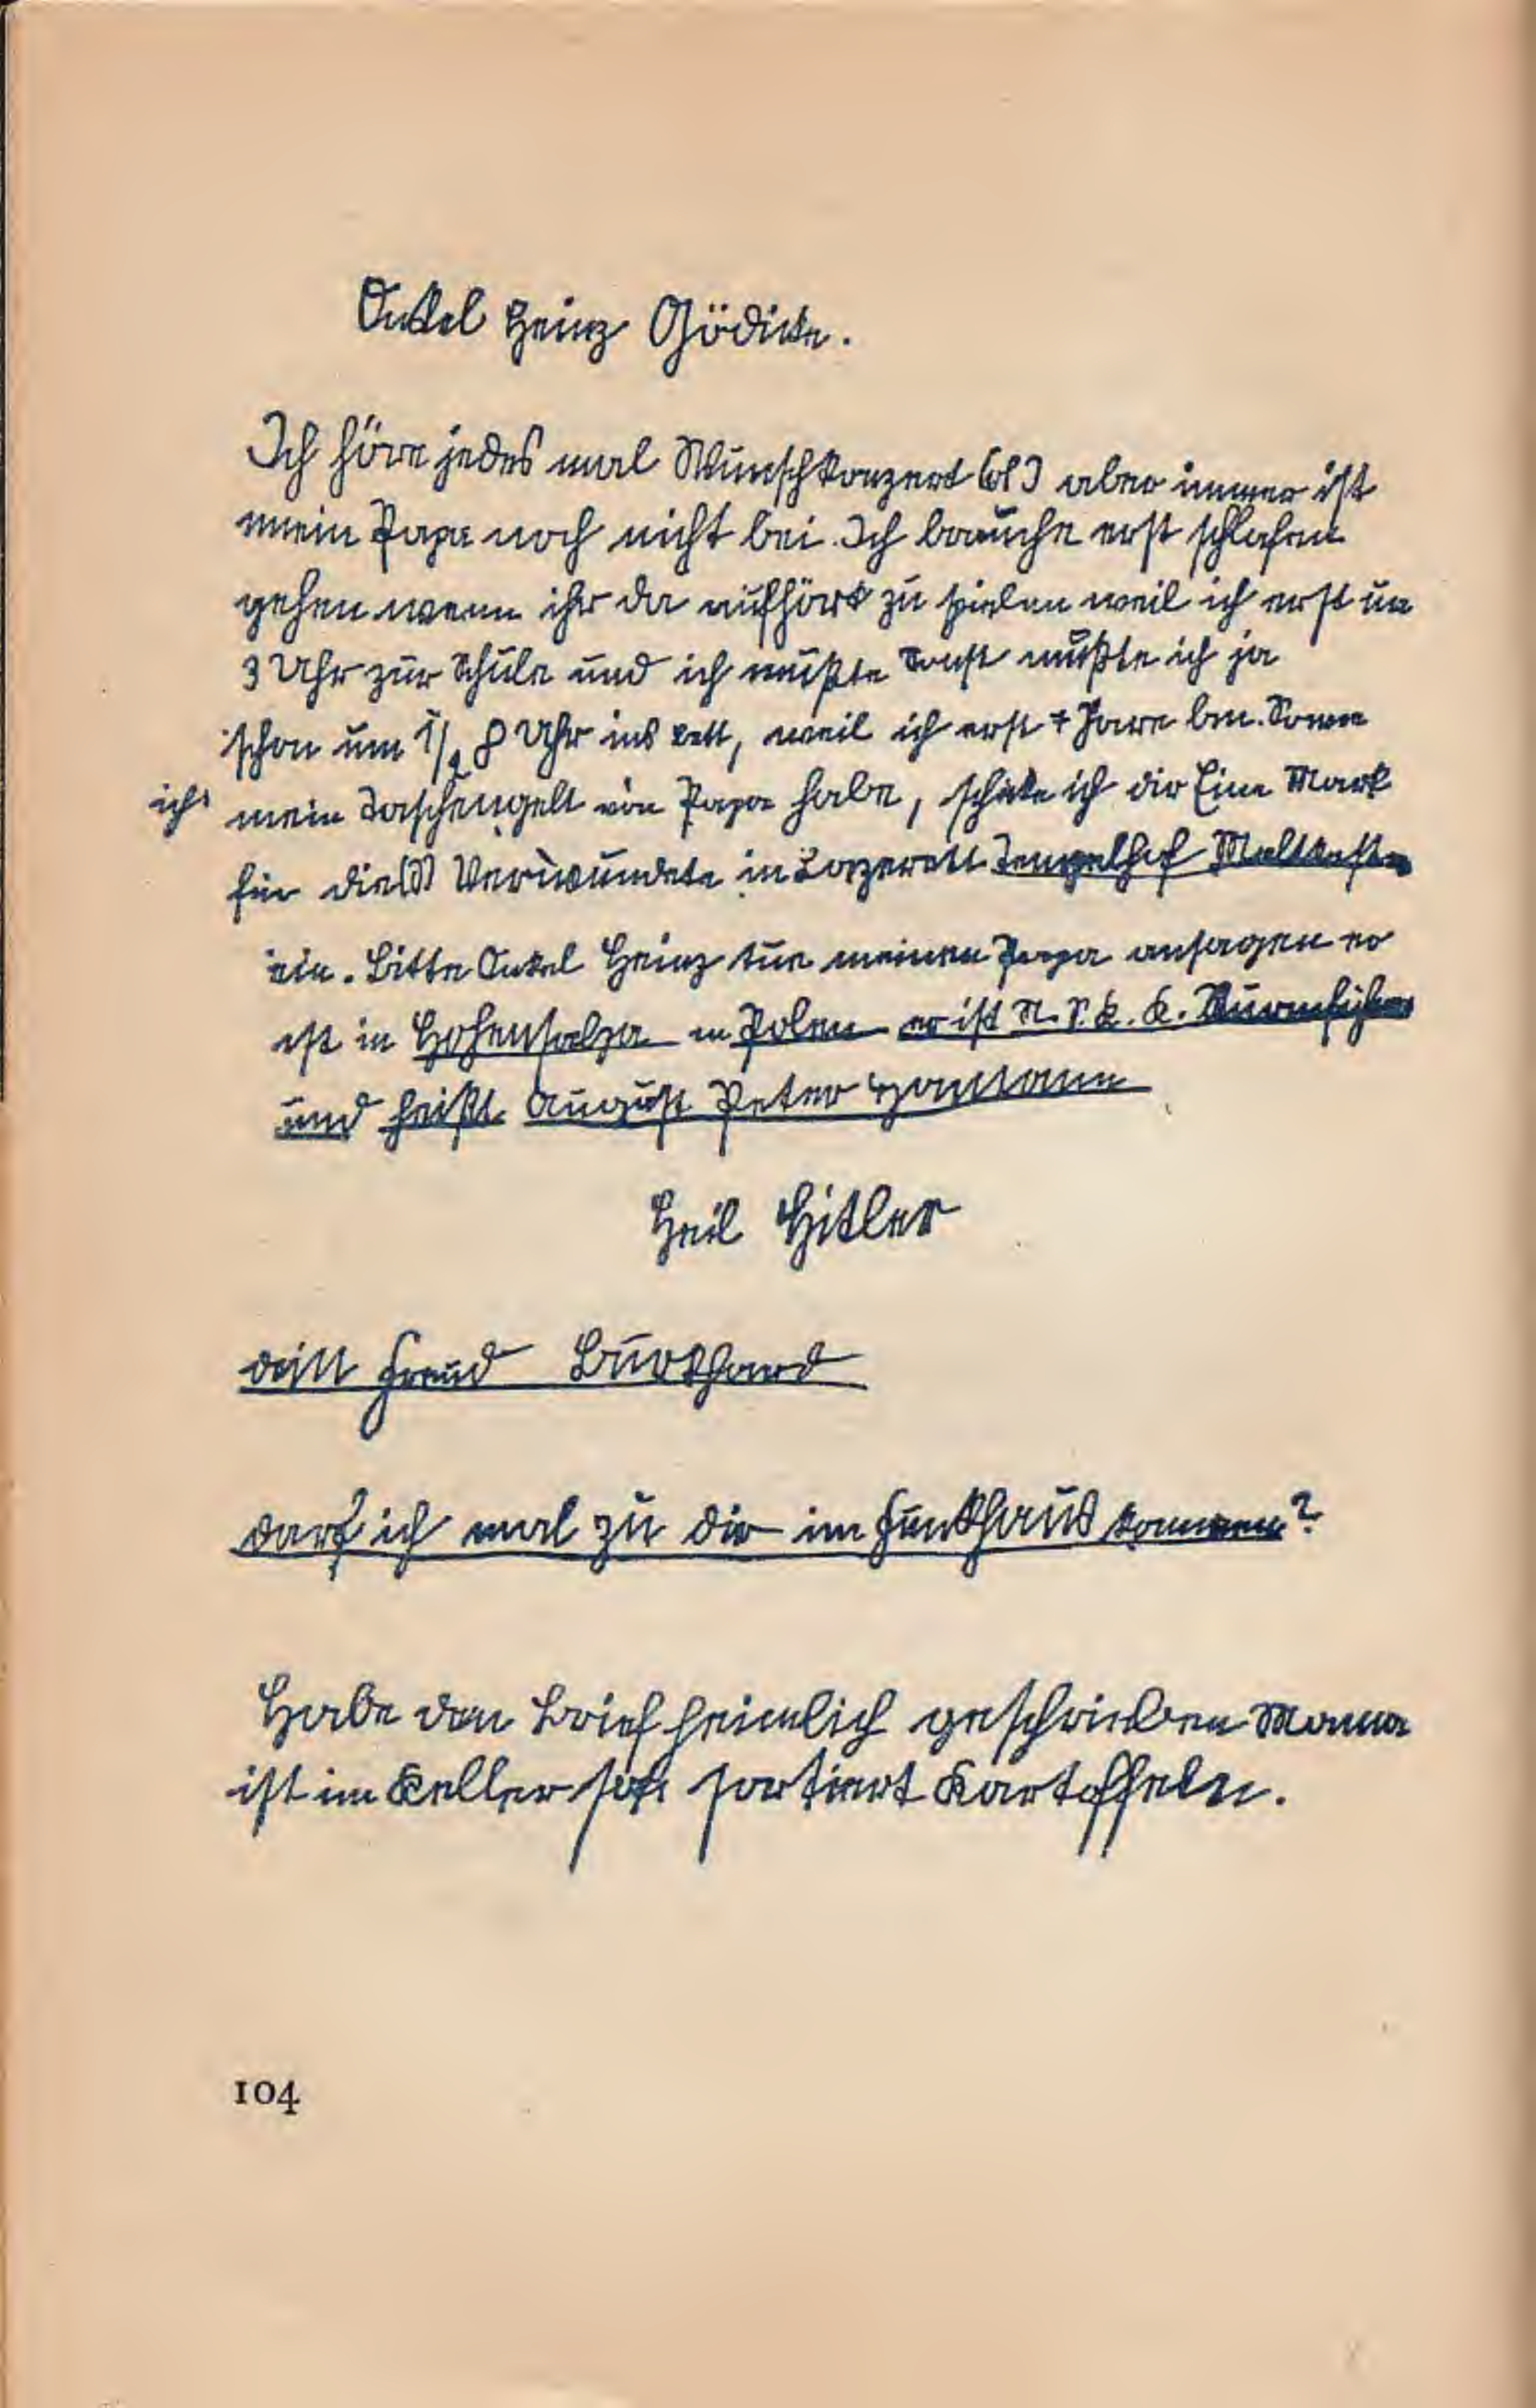 Onkel Heinz Gödicke.
Ich höre jedes mal Wunschkonzert aber immer ist
mein Papa noch nicht bei. Ich brauche erst schlafen
gehen wenn ihr da aufhört zu spielen weil ich erst um
3 Uhr zur Schule und ich müßte sonst müßte ich ja
schon um 1/2 8 Uhr ins bett, weil ich erst 7 Jare bin.
ich mein Taschengelt von Papa habe, schicke ich dir Eine Mark
für die Verwundete in Lazerett Tempelhof
ein. Bitte Onkel Heinz tue meinen Papa ansagen er
ist in Hohensalza in Polen er ist N. S. K. K. Sturmführer
und heißt August Peter
Heil Hitler
dein Freud Burkhard
darf ich mal zu dir im Funkhaus kommen?
Habe den Brief heimlich geschrieben Mama
ist im Keller sortiert Kartoffeln.
104